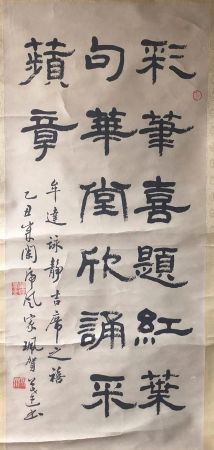 彩筆喜題紅葉
句華堂欣誦采
蘋章
牟達詠靜吉席之禧
乙丑 家珮賀